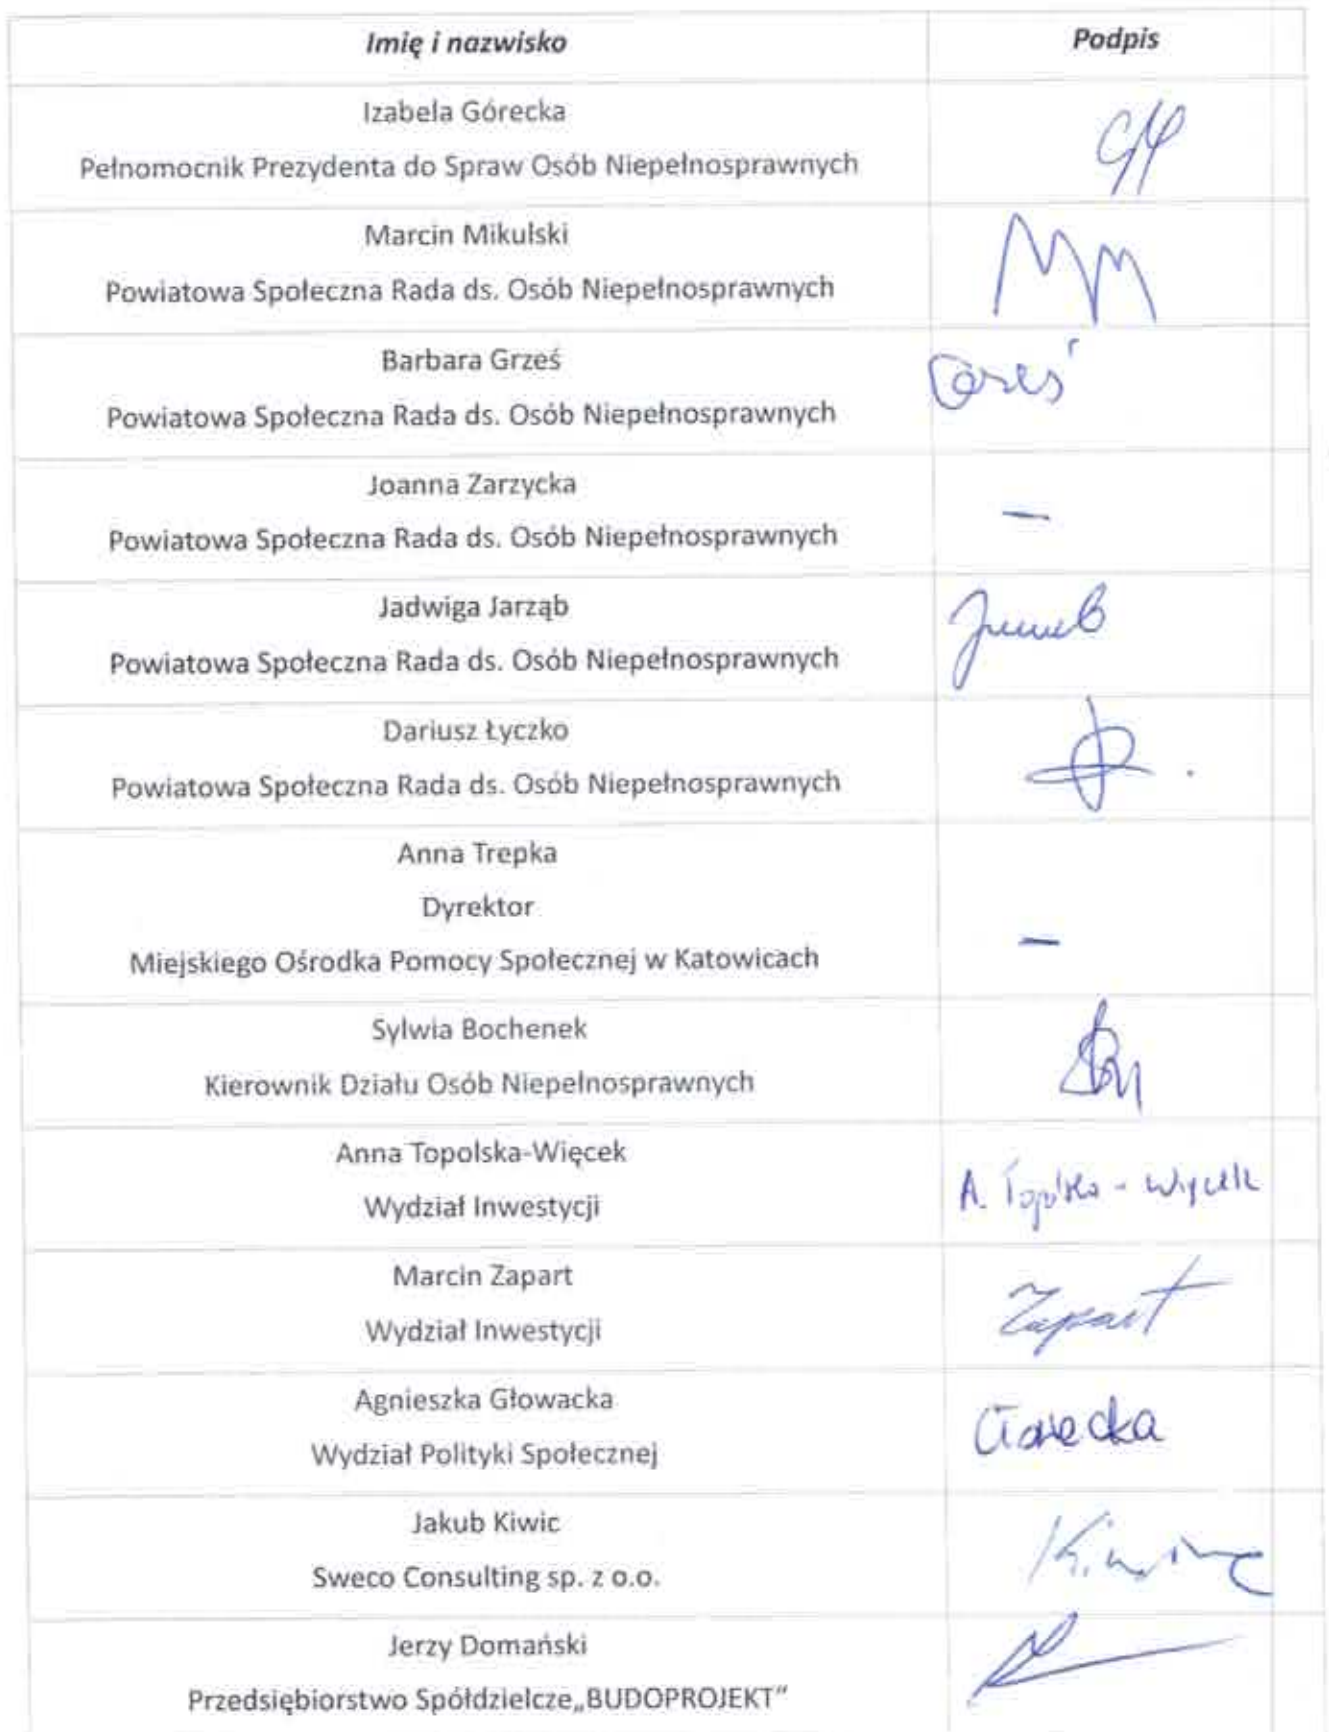 Imię i nazwisko Podpis
Izabela Górecka
Pełnomocnik Prezydenta do Spraw Osób Niepełnosprawnych
Marcin Mikulski
Powiatowa Społeczna Rada ds. Osób Niepełnosprawnych
Barbara Grześ
Powiatowa Społeczna Rada ds. Osób Niepełnosprawnych
Joanna Zarzycka
–
Powiatowa Społeczna Rada ds. Osób Niepełnosprawnych
Jadwiga Jarząb
Powiatowa Społeczna Rada ds. Osób Niepełnosprawnych
Dariusz Łyczko
Powiatowa Społeczna Rada ds. Osób Niepełnosprawnych
Anna Trepka
Dyrektor
–
Miejskiego Ośrodka Pomocy Społecznej w Katowicach
Sylwia Bochenek
Kierownik Działu Osób Niepełnosprawnych
Anna Topolska-Więcek
Wydział Inwestycji
Marcin Zapart
Zapart
Wydział Inwestycji
Agnieszka Głowacka
Wydział Polityki Społecznej
Jakub Kiwic
Sweco Consulting sp. z o.o.
Jerzy Domański
Przedsiębiorstwo Spółdzielcze„BUDOPROJEKT"